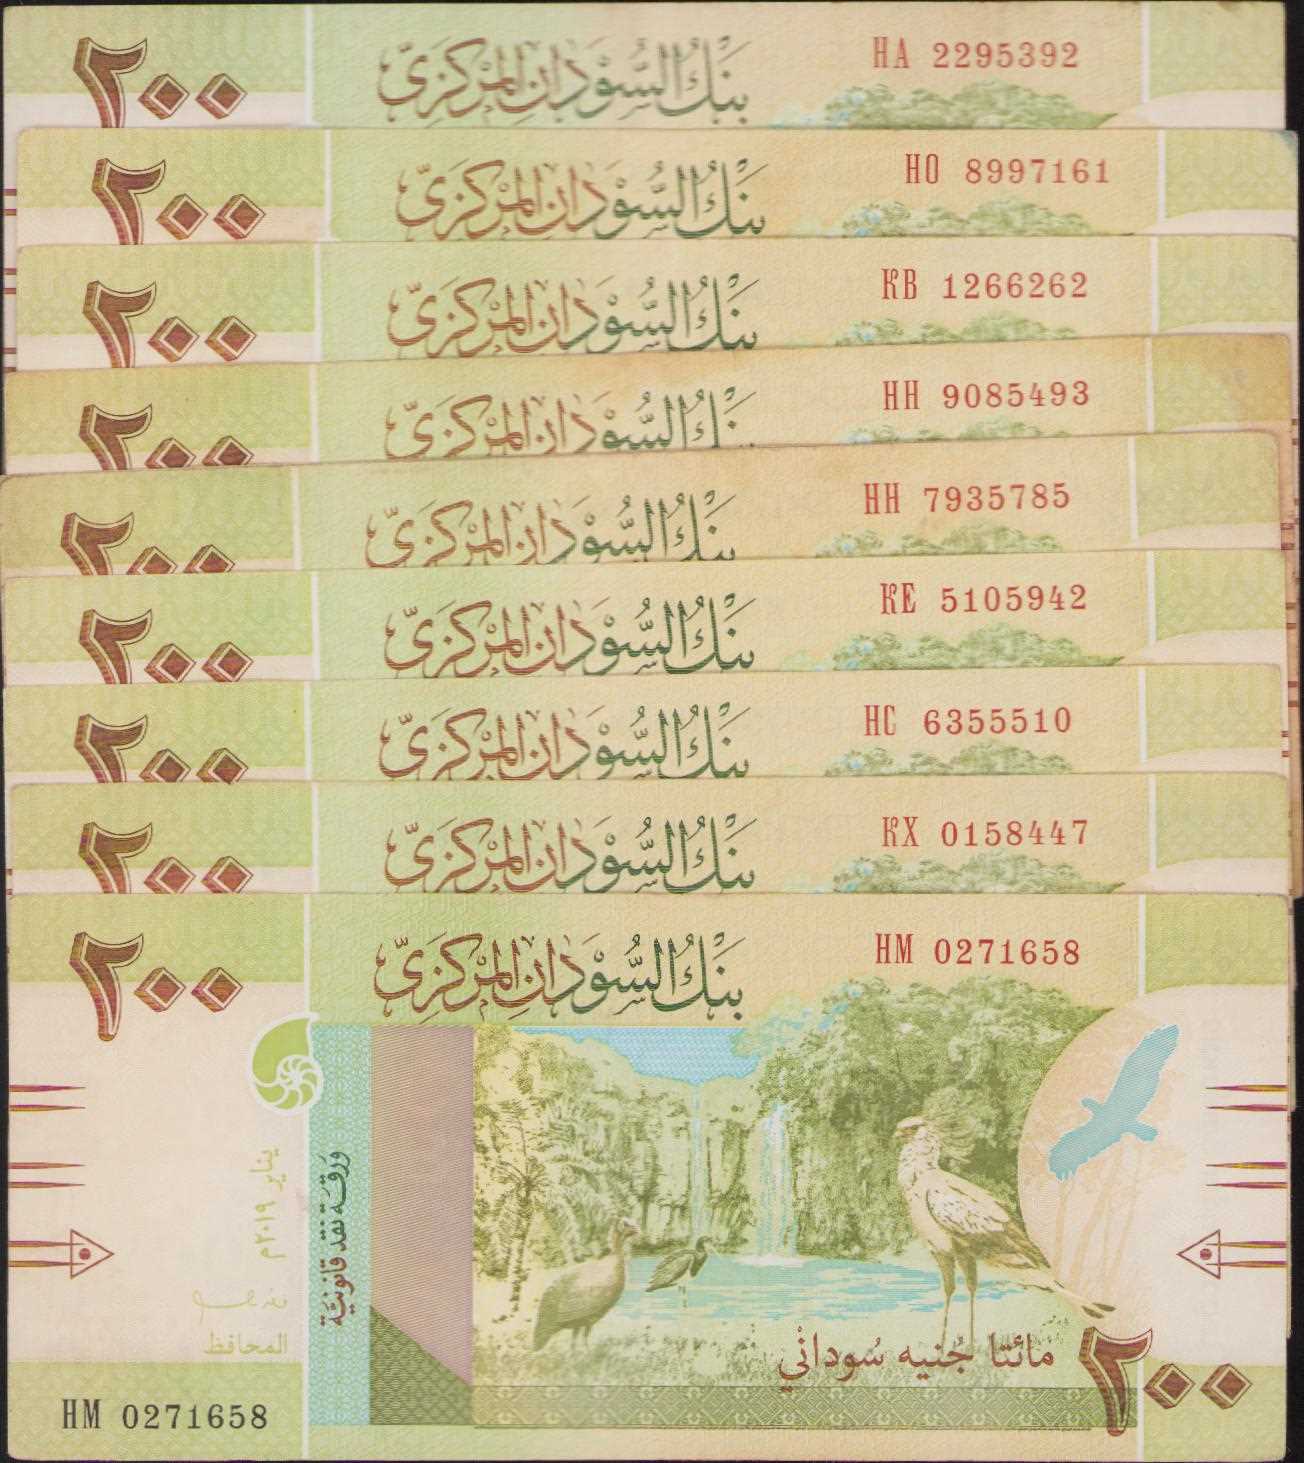 ٢٠٠ بنك السودان المركزي HA 2295392
٢٠٠ بنك السودان المركزي HO 8997161
٢٠٠ بنك السودان المركزي KB 1266262
٢٠٠ بنك السودان المركزي HH 9085493
٢٠٠ بنك السودان المركزي HH 7935785
٢٠٠ بنك السودان المركزي KE 5105942
٢٠٠ بنك السودان المركزي HC 6355510
٢٠٠ بنك السودان المركزي KX 0158447
٢٠٠ بَنْكُ السُّودَانِ المَرْكَزِيّ HM 0271658
يناير ٢٠١٩م
وَرَقَة نَقد قَانُونيَّة
المحافظ
مائتا جُنيه سُودانْي
٢٠٠
HM 0271658